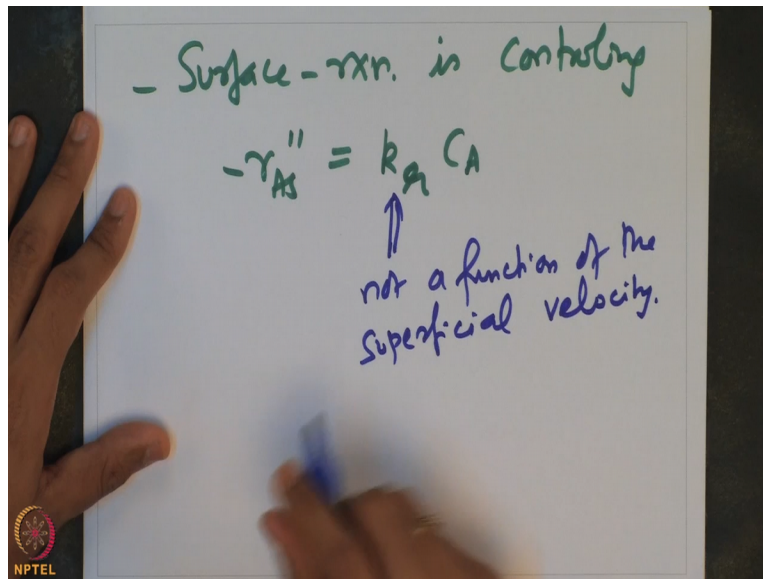 - Surface - rxn. is Controling
-r_As'' = k_r C_A
not a function of the
superficial velocity.
NPTEL